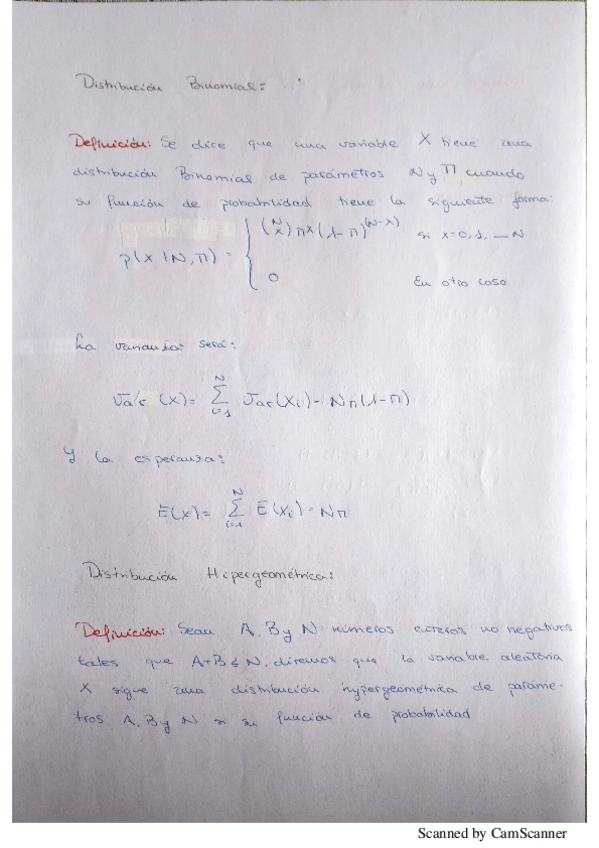 Distribución Binomial:
Definición: Se dice que una variable X tiene una
distribución Binomial de parámetros N y Π cuando
su función de probabilidad tiene la siguiente forma:
p(x|N,Π) = { (N x) Π^x (1-Π)^(N-x) si x=0,1,...N
0 En otro caso
La varianza será:
Var (X) = Σ_{i=1}^{N} Var(Xi) = NΠ(1-Π)
Y la esperanza:
E(X) = Σ_{i=1}^{N} E(Xi) = NΠ
Distribución Hipergeométrica:
Definición: Sean A, B y N números enteros no negativos
tales que A+B≤N, diremos que la variable aleatoria
X sigue una distribución hypergeométrica de paráme-
tros A, B y N si su función de probabilidad
Scanned by CamScanner